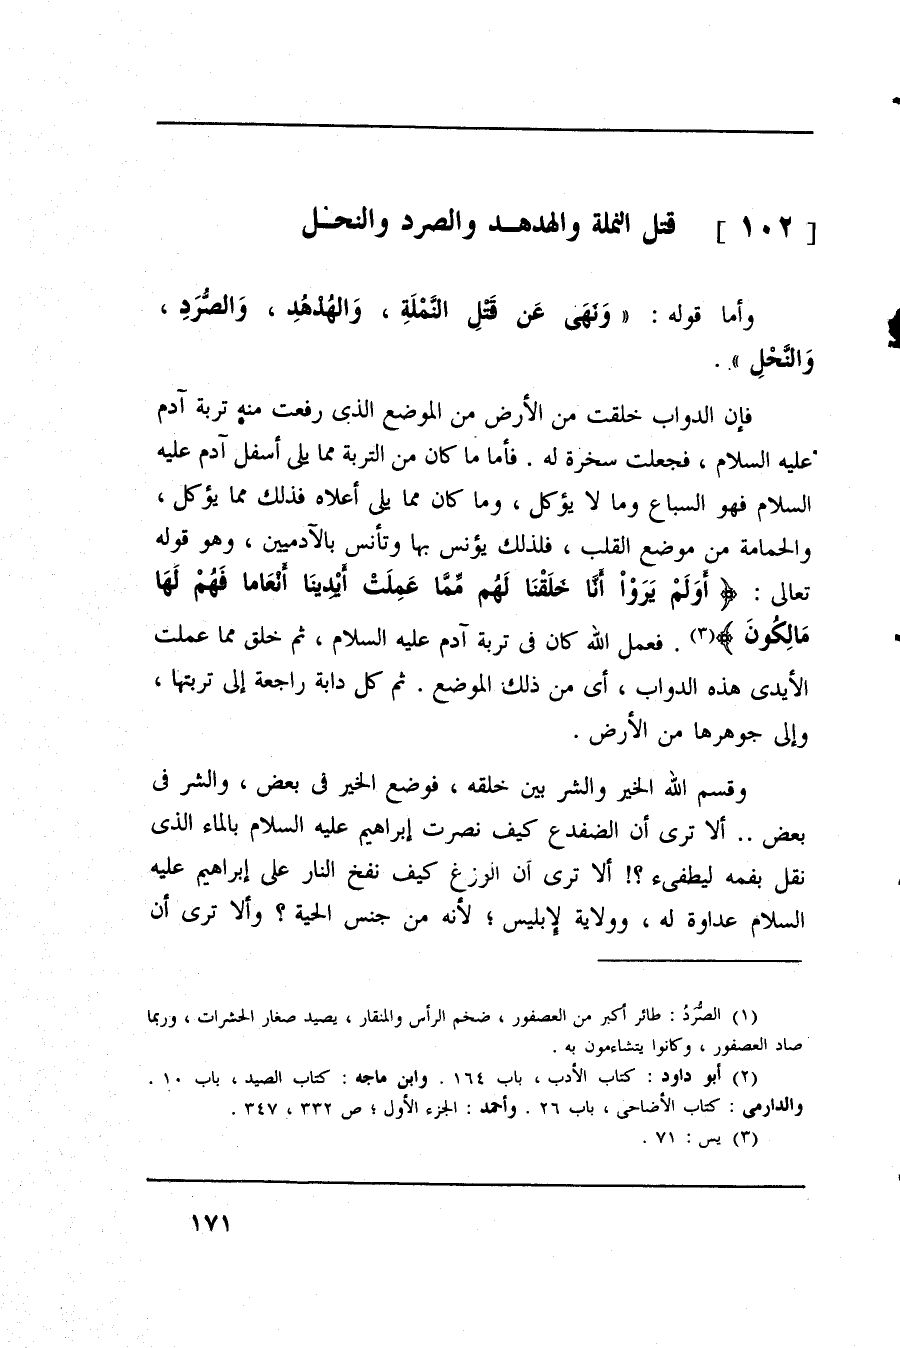 [ ١٠٢ ] قتل النملة والهدهد والصرد والنحل
وأما قوله : « وَنَهَى عَن قَتْلِ النَّمْلَةِ ، وَالهُدْهُدِ ، وَالصُّرَدِ ،
وَالنَّحْلِ » .
فإن الدواب خلقت من الأرض من الموضع الذى رفعت منه تربة آدم
عليه السلام ، فجعلت سخرة له . فأما ما كان من التربة مما يلى أسفل آدم عليه
السلام فهو السباع وما لا يؤكل ، وما كان مما يلى أعلاه فذلك مما يؤكل ،
والحمامة من موضع القلب ، فلذلك يؤنس بها وتأنس بالآدميين ، وهو قوله
تعالى : ﴿ أَوَلَمْ يَرَوْاْ أَنَّا خَلَقْنَا لَهُم مِّمَّا عَمِلَتْ أَيْدِينَا أَنْعَاما فَهُمْ لَهَا
مَالِكُونَ ﴾(٣) . فعمل الله كان فى تربة آدم عليه السلام ، ثم خلق مما عملت
الأيدى هذه الدواب ، أى من ذلك الموضع . ثم كل دابة راجعة إلى تربتها ،
وإلى جوهرها من الأرض .
وقسم الله الخير والشر بين خلقه ، فوضع الخير فى بعض ، والشر فى
بعض .. ألا ترى أن الضفدع كيف نصرت إبراهيم عليه السلام بالماء الذى
نقل بفمه ليطفىء ؟! ألا ترى أن الوزغ كيف نفخ النار على إبراهيم عليه
السلام عداوة له ، وولاية لإبليس ؛ لأنه من جنس الحية ؟ وألا ترى أن
(١) الصُّرَدُ : طائر أكبر من العصفور ، ضخم الرأس والمنقار ، يصيد صغار الحشرات ، وربما
صاد العصفور ، وكانوا يتشاءمون به .
(٢) أبو داود : كتاب الأدب ، باب ١٦٤ . وابن ماجه : كتاب الصيد ، باب ١٠ .
والدارمى : كتاب الأضاحى ، باب ٢٦ . وأحمد : الجزء الأول ؛ ص ٣٣٢ ، ٣٤٧ .
(٣) يس : ٧١ .
١٧١